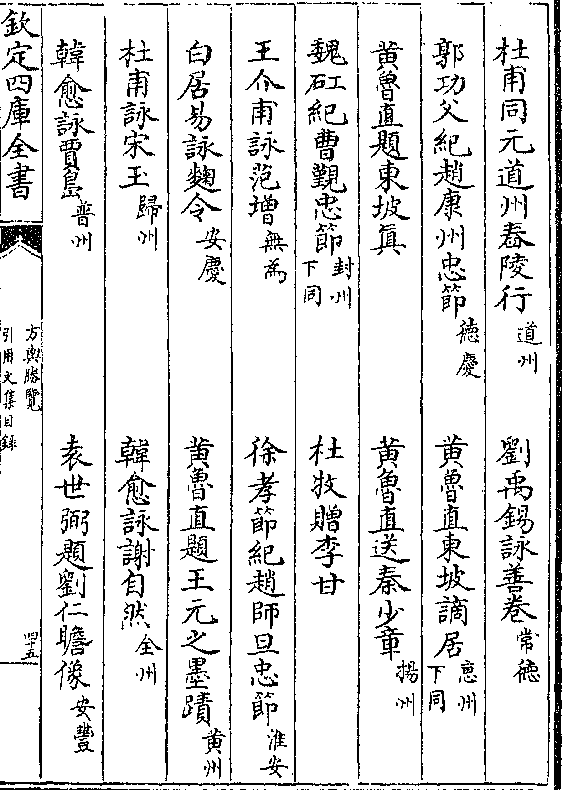 杜甫同元道州舂陵行 道州 劉禹錫詠善卷 常德
郭功父紀趙康州忠節 德慶 黃魯直東坡謫居 惠州下同
黃魯直題東坡真 黃魯直送秦少章 揚州
魏矼紀曹覲忠節 封州下同 杜牧贈李甘
王介甫詠范增 無為 徐孝節紀趙師旦忠節 淮安
白居易詠麴令 安慶 黃魯直題王元之墨蹟 黃州
杜甫詠宋玉 歸州 韓愈詠謝自然 全州
韓愈詠賈島 普州 袁世弼題劉仁瞻像 安豐
欽定四庫全書
方輿勝覽
引用文集目錄
四十五